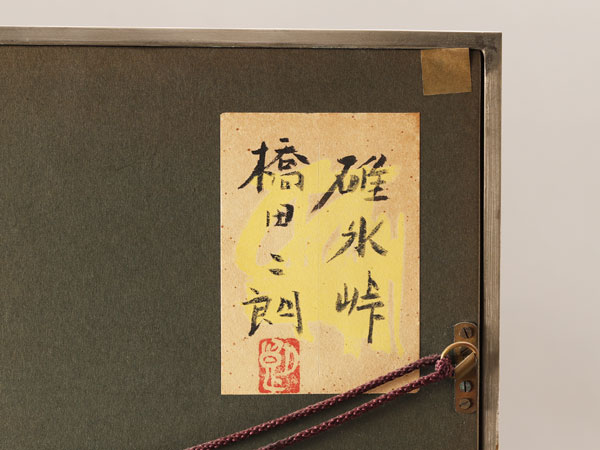 碓氷峠
橋田二朗